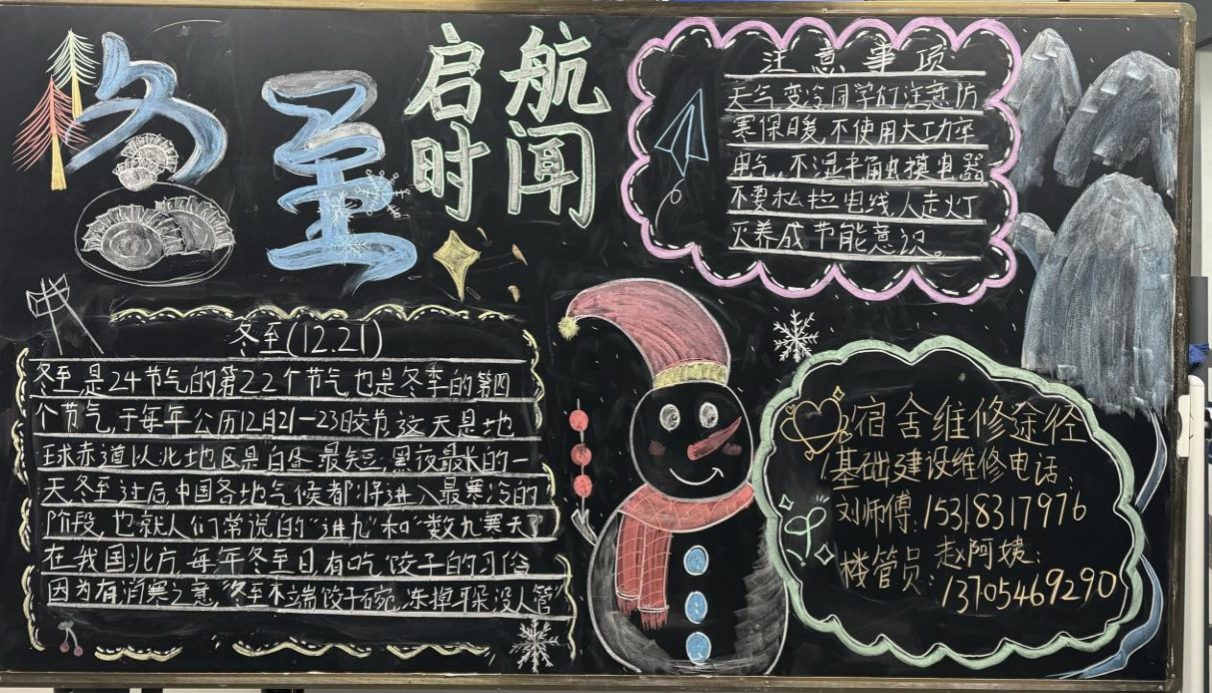 冬至
启航
时闻
注意事项
天气变冷同学们注意防
寒保暖,不使用大功率
电气,不湿手触摸电器
不要私拉电线人走灯
灭养成节能意识。
冬至(12.21)
冬至是24节气的第22个节气也是冬季的第四
个节气,于每年公历12月21-23日交节,这天是地
球赤道以北地区是白昼最短,黑夜最长的一
天冬至过后,中国各地气候都将进入最寒冷的
阶段,也就人们常说的"进九"和"数九寒天"
在我国北方,每年冬至日,有吃饺子的习俗
因为有消寒之意,"冬至不端饺子碗,冻掉耳朵没人管"
宿舍维修途径
1基础建设维修电话:
刘师傅:15318317976
楼管员:赵阿姨:
13705469290